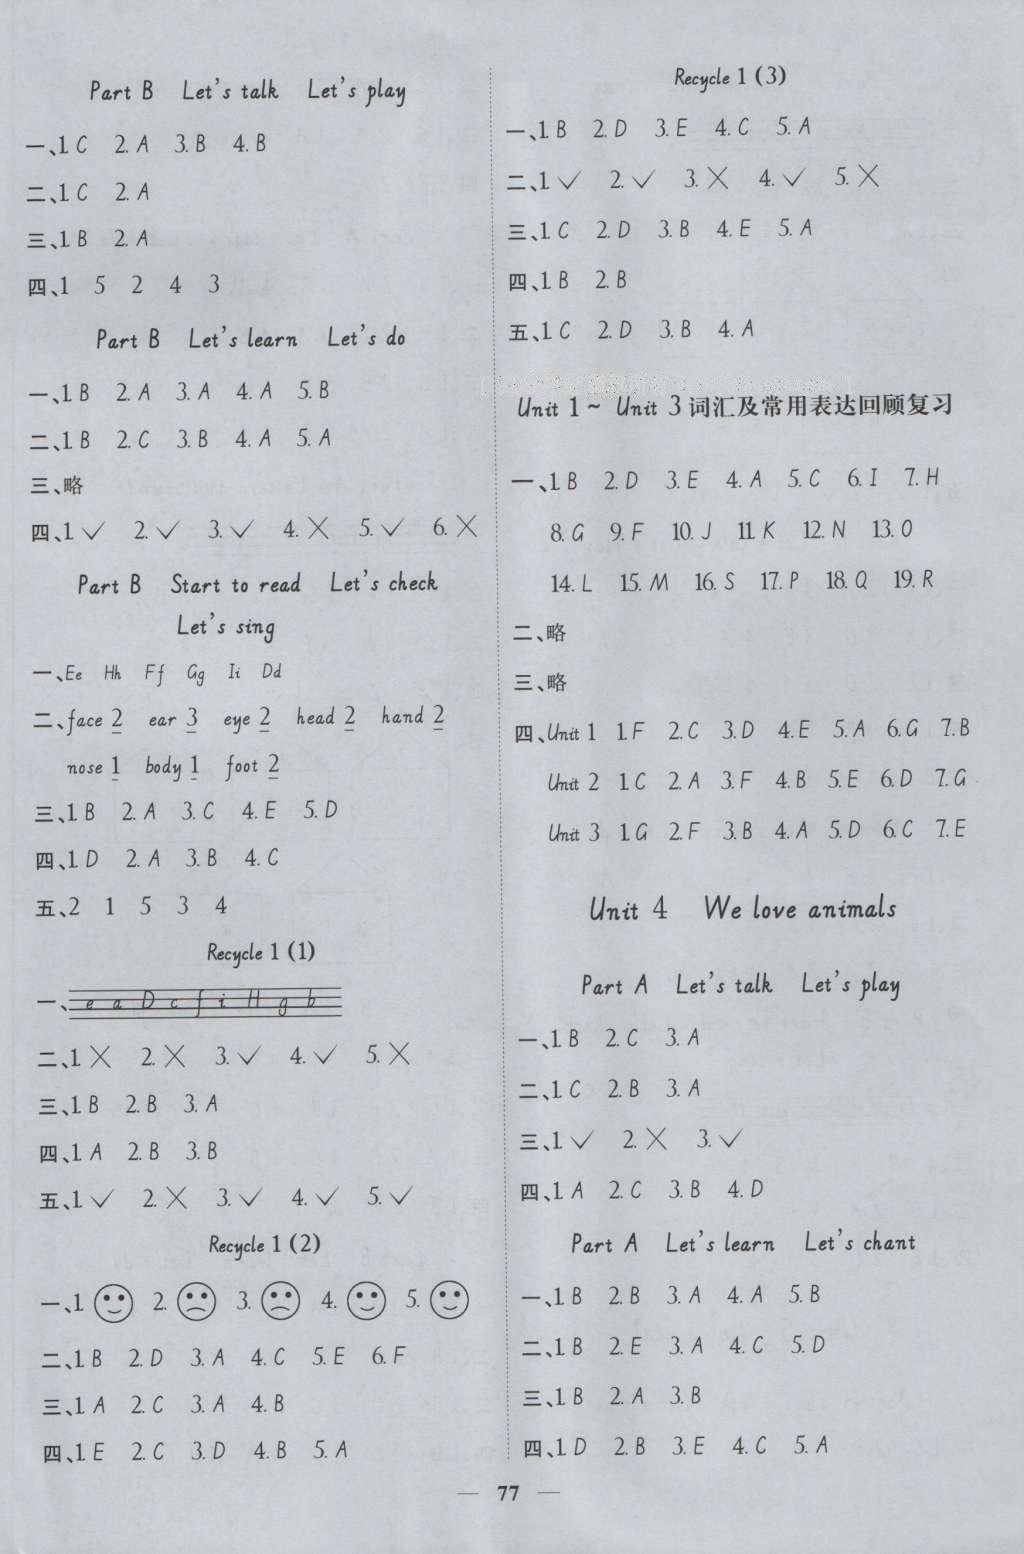 Part B Let's talk Let's play
一、1 C 2. A 3. B 4. B
二、1 C 2. A
三、1 B 2. A
四、1 5 2 4 3
Part B Let's learn Let's do
一、1 B 2. A 3. A 4. A 5. B
二、1 B 2. C 3. B 4. A 5. A
三、略
四、1 ✓ 2. ✓ 3. ✓ 4. ✗ 5. ✓ 6. ✗
Part B Start to read Let's check
Let's sing
一、Ee Hh Ff Gg Ii Dd
二、face 2 ear 3 eye 2 head 2 hand 2
nose 1 body 1 foot 2
三、1 B 2. A 3. C 4. E 5. D
四、1 D 2. A 3. B 4. C
五、2 1 5 3 4
Recycle 1 (1)
一、e a D c f i H g b
二、1 ✗ 2. ✗ 3. ✓ 4. ✓ 5. ✗
三、1 B 2. B 3. A
四、1 A 2. B 3. B
五、1 ✓ 2. ✗ 3. ✓ 4. ✓ 5. ✓
Recycle 1 (2)
一、1 2. 3. 4. 5.
二、1 B 2. D 3. A 4. C 5. E 6. F
三、1 A 2. C 3. A 4. B
四、1 E 2. C 3. D 4. B 5. A
Recycle 1 (3)
一、1 B 2. D 3. E 4. C 5. A
二、1 ✓ 2. ✓ 3. ✗ 4. ✓ 5. ✗
三、1 C 2. D 3. B 4. E 5. A
四、1 B 2. B
五、1 C 2. D 3. B 4. A
Unit 1 ~ Unit 3 词汇及常用表达回顾复习
一、1 B 2. D 3. E 4. A 5. C 6. I 7. H
8. G 9. F 10. J 11. K 12. N 13. O
14. L 15. M 16. S 17. P 18. Q 19. R
二、略
三、略
四、Unit 1 1. F 2. C 3. D 4. E 5. A 6. G 7. B
Unit 2 1. C 2. A 3. F 4. B 5. E 6. D 7. G
Unit 3 1. G 2. F 3. B 4. A 5. D 6. C 7. E
Unit 4 We love animals
Part A Let's talk Let's play
一、1 B 2. C 3. A
二、1 C 2. B 3. A
三、1 ✓ 2. ✗ 3. ✓
四、1 A 2. C 3. B 4. D
Part A Let's learn Let's chant
一、1 B 2. B 3. A 4. A 5. B
二、1 B 2. E 3. A 4. C 5. D
三、1 B 2. A 3. B
四、1 D 2. B 3. E 4. C 5. A
— 77 —